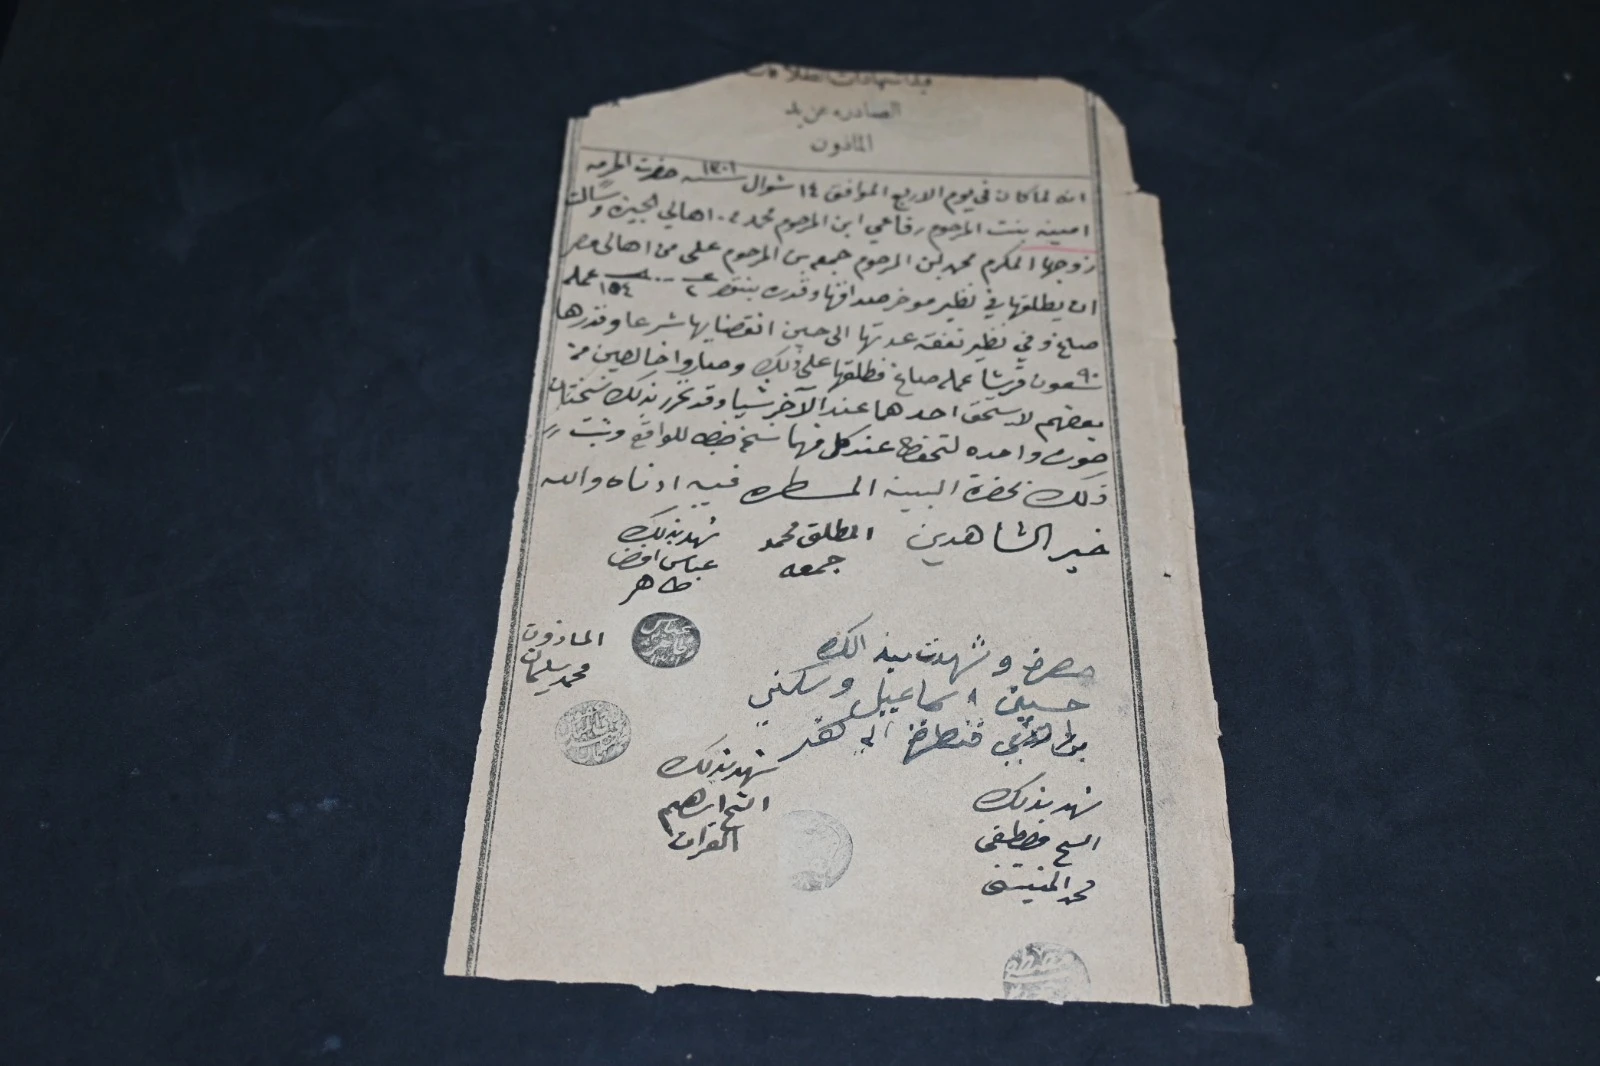 قيد شهادات الطلاقات
الصادره عن يد
المأذون
انه لما كان في يوم الاربع الموافق ١٤ شوال سنه ١٣٠١ حضرت الحرمه
امينه بنت المرحوم رفاعي ابن المرحوم محمد من اهالي الجيزه وسالت
زوجها المكرم محمد بن المرحوم جمعه بن المرحوم على من اهالى مصر
ان يطلقها في نظير موخر صداقها وقدره عمله
صاغ وفي نظير نفقة عدتها الى حين انقضايها شرعا وقدرها
٩٠ تسعون قرشا عمله صاغ فطلقها على ذلك وصاروا خالصين من
بعضهم لا يستحق احدهما عند الآخر شيا وقد تحرر بذلك نسختان
صورة واحده لتحفظ عند كل منهما نسخه للواقع وثبت
ذلك بحضرة البينه المسطره فيه ادناه والله
خير الشاهدين
المطلق محمد
جمعه
شهد بذلك
عباس افندى
طاهر
المأذون
محمد سليمان
حضرة وشهدت بذالك
حسين اسماعيل وسكني
شهد بذلك
الشيخ ابراهيم
شهد بذلك
الشيخ مصطفى
محمد